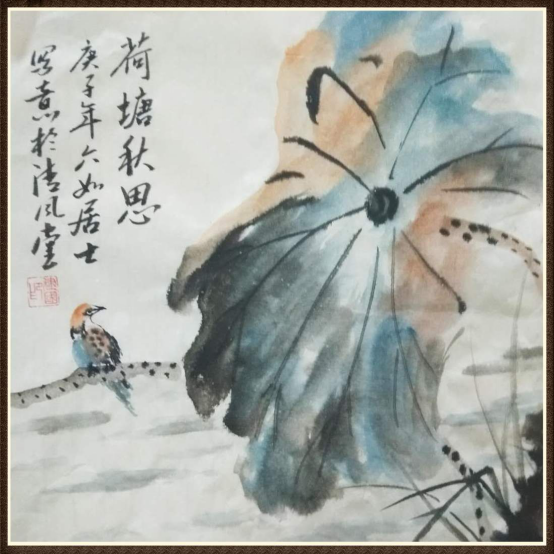 荷塘秋思
庚子年六如居士
写意於清风堂